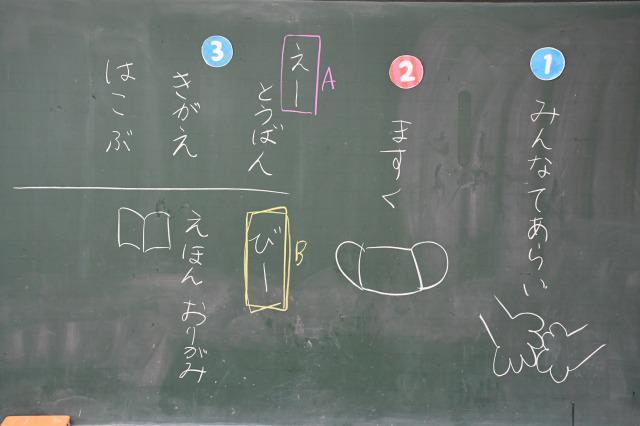 1
みんなてあらい
2
ますく
3
えー
A
とうばん
きがえ
はこぶ
びー
B
えほん おりがみ